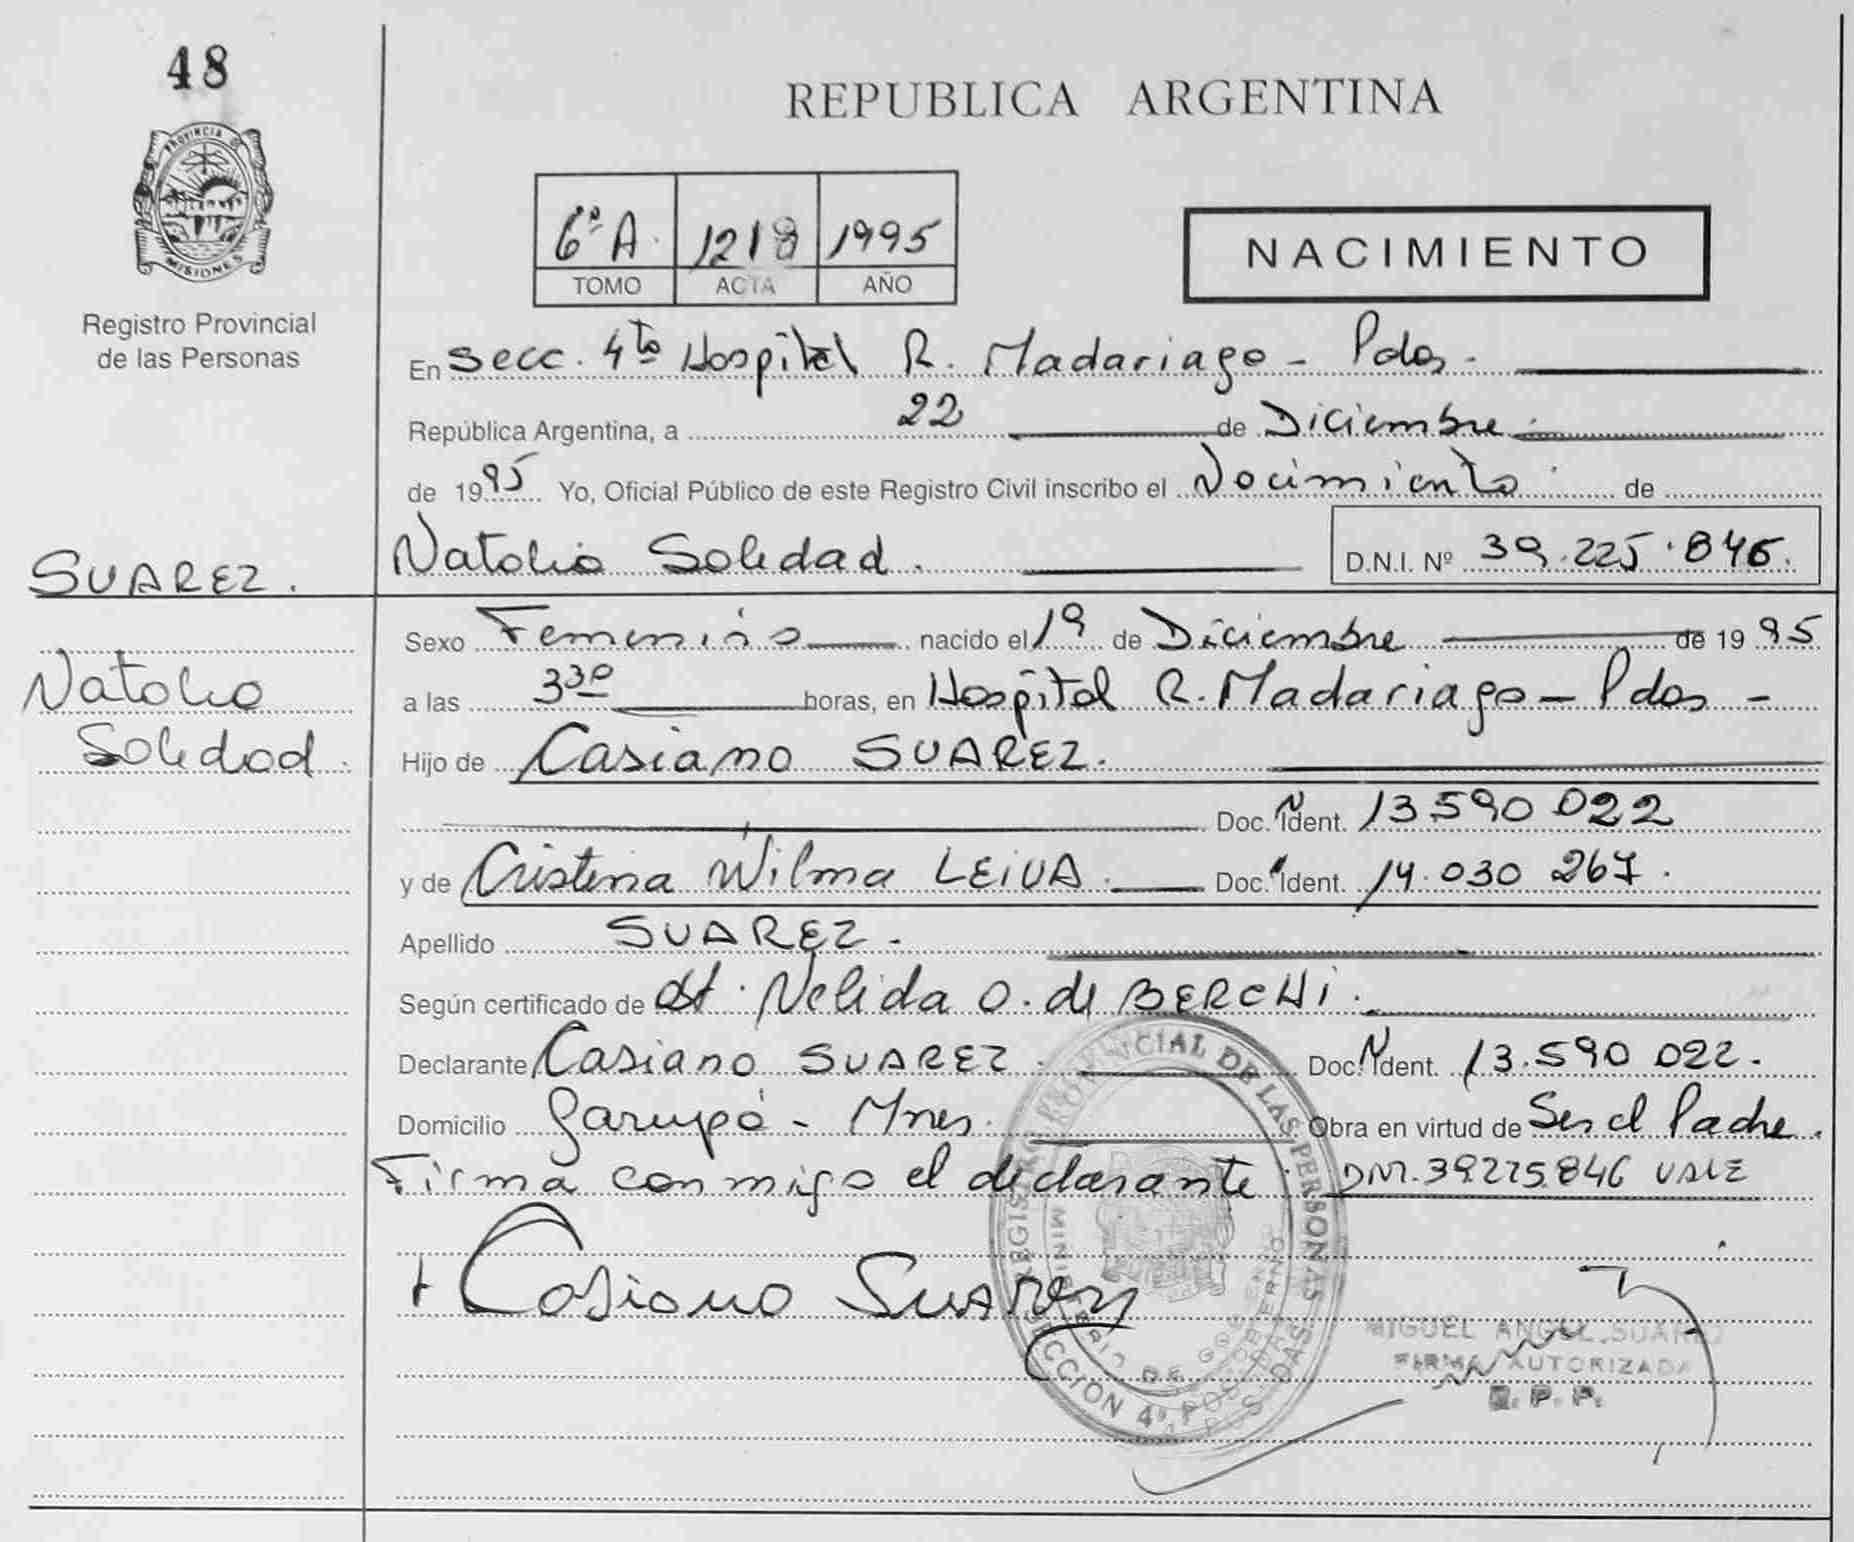 48
PROVINCIA DE
MISIONES
Registro Provincial
de las Personas
REPUBLICA ARGENTINA
6º A. 1218 1995
TOMO ACTA AÑO
NACIMIENTO
En Secc. 4to Hospital R. Madariaga - Pdas.
República Argentina, a 22 de Diciembre
de 1995 Yo, Oficial Público de este Registro Civil inscribo el Nacimiento de
SUAREZ. Natalia Soledad. D.N.I. Nº 39.225.846.
Natalia
Soledad.
Sexo Femenino nacido el 19 de Diciembre de 1995
a las 3 30 horas, en Hospital R. Madariaga - Pdas -
Hijo de Casiano SUAREZ.
Doc. Ident. 13.590 022
y de Cristina Wilma LEIVA. Doc. Ident. 14.030 267.
Apellido SUAREZ.
Según certificado de Nelida O. de BERCHI.
Declarante Casiano SUAREZ. Doc. Ident. 13.590 022.
Domicilio Garupá - Mnes. Obra en virtud de Ser el Padre.
Firma conmigo el declarante. DNI. 39225.846 VALE
Casiano Suarez
REGISTRO PROVINCIAL DE LAS PERSONAS
MINISTERIO DE GOBIERNO
SECCION 4ª POSADAS
MIGUEL ANGEL SUAREZ
FIRMA AUTORIZADA
R. P. P.